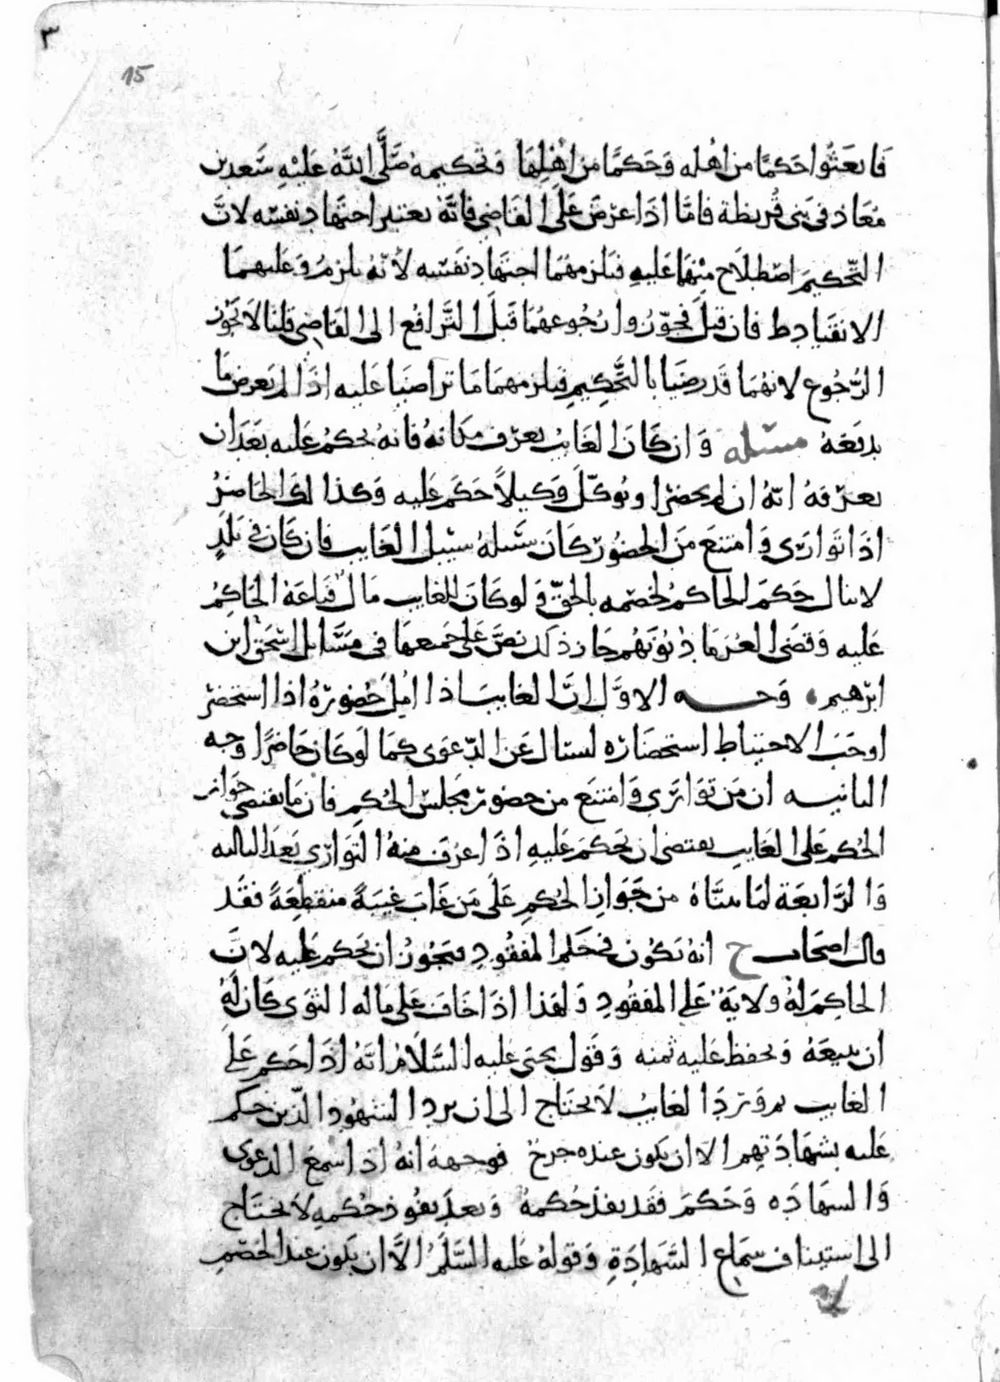 ٣
15
فابعثوا حكمًا من اهله وحكمًا من اهلها وتحكيمه صلى الله عليه سعد بن
معاذ في بني قريظة فاما اذا عرض على القاضي فانه يعتبر اجتهاد نفسه لان
التحكيم اصطلاح منهما عليه فيلزمهما اجتهاد نفسه لانه يلزم وعليهما
الانقياد ط فان قيل فجوزوا رجوعهما قبل الترافع الى القاضي قلنا لا يجوز
الرجوع لانهما قد رضيا بالتحكيم فيلزمهما ما تراضيا عليه اذا لم يعرض ما
يدفعه مسئله وان كان الغايب يعرف مكانه فانه يحكم عليه بعد ان
يعرفه انه ان لم يحضر او يوكل وكيلاً حكم عليه وكذا لك الحاضر
اذا توارى وامتنع من الحضور كان سبيله سبيل الغايب فان كان في بلد
لا ينال حكم الحاكم لخصمه بالحق ولو كان للغايب مال فباعه الحاكم
عليه وقضى الغرما ديونهم جاز ذلك نص على جميعها في مسايل اسحق ابن
ابرهيم وجه الاول ان الغايب اذا امل حضوره اذا استحضر
اوجب الاحتياط استحضاره ليسال عن الدعوى كما لو كان حاضرًا وجه
الثانيه ان من توارى وامتنع من حضور مجلس الحكم فان ما يقتضي جواز
الحكم على الغايب يقتضي ان يحكم عليه اذا عرف منه التوارى بعد الثالثه
والرابعة لما بيناه من جواز الحكم على من غاب غيبة منقطعة فقد
قال اصحاب ح انه يكون في حكم المفقود فيجوز ان يحكم عليه لان
الحاكم له ولاية على المفقود ولهذا اذا خاف على ماله التوى كان له
ان يبيعه ويحفظ عليه ثمنه وقول يحيى عليه السلام انه اذا حكم على
الغايب ثم ورد الغايب لا يحتاج الى ان يرد الشهود الذين حكم
عليه بشهادتهم الا ان يكون عنده جرح فوجهه انه اذا سمع الدعوى
والشهادة وحكم فقد نفذ حكمه وبعد نفوذ حكمه لا يحتاج
الى استيناف سماع الشهادة وقوله عليه السلم الا ان يكون عند الخصم